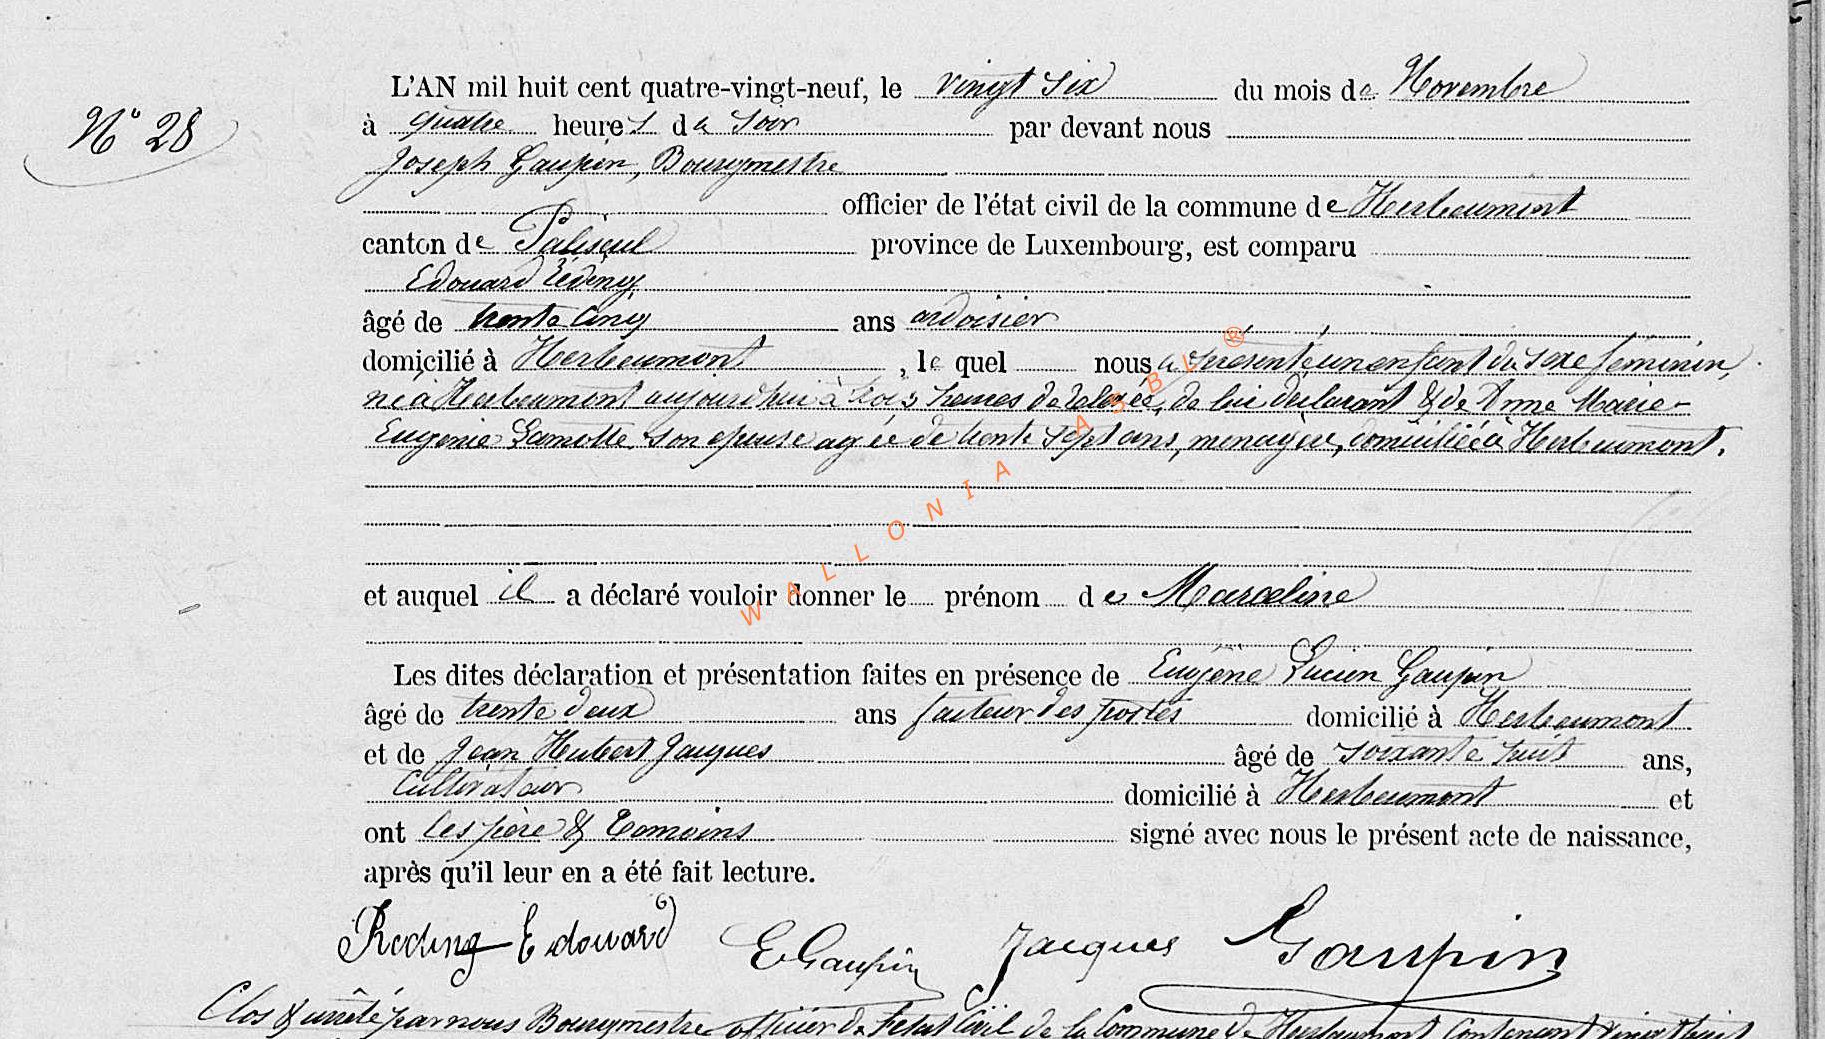 N° 28
L'AN mil huit cent quatre-vingt-neuf, le vingt six du mois de Novembre
à quatre heures du soir par devant nous
Joseph Gaupin, Bourgmestre
officier de l'état civil de la commune de Herbeumont
canton de Paliseul province de Luxembourg, est comparu
Edouard Réding
âgé de trente cinq ans ardoisier
domicilié à Herbeumont, lequel nous a présenté un enfant du sexe féminin,
né à Herbeumont aujourd'hui à trois heures de relevée, de lui déclarant & de Anne Marie-
Eugénie Lamotte son épouse agée de trente sept ans, ménagère, domiciliée à Herbeumont.
et auquel il a déclaré vouloir donner le prénom de Marceline
Les dites déclaration et présentation faites en présence de Eugène Lucien Gaupin
âgé de trente deux ans facteur des postes domicilié à Herbeumont
et de Jean Hubert Jacques âgé de soixante huit ans,
Cultivateur domicilié à Herbeumont et
ont les père & témoins signé avec nous le présent acte de naissance,
après qu'il leur en a été fait lecture.
Reding Edouard E Gaupin Jacques Gaupin
Clos & arrêté par nous Bourgmestre officier de l'état Civil de la Commune de Herbeumont Contenant vingt huit
WALLONIA ASBL ®